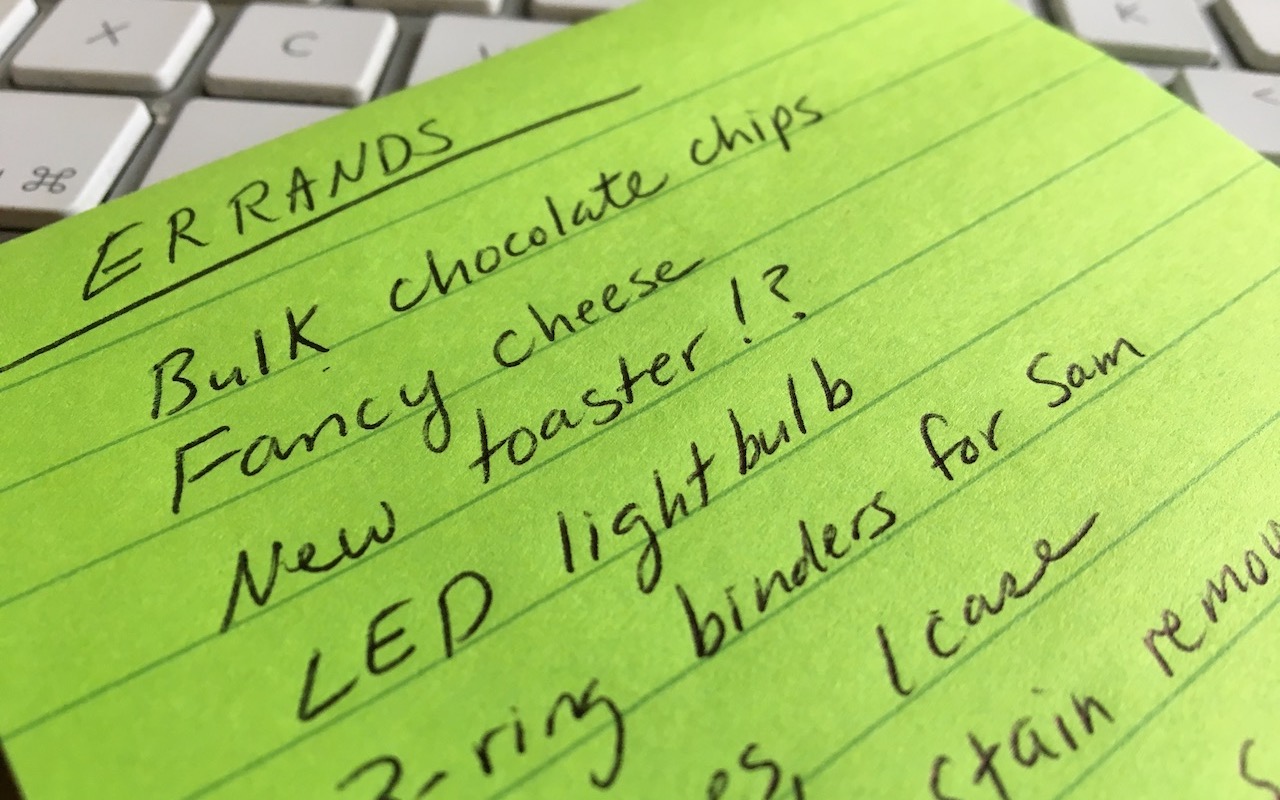 X C K
⌘
ERRANDS
Bulk chocolate chips
Fancy cheese
New toaster!?
LED lightbulb
3-ring binders for Sam
1 case
stain